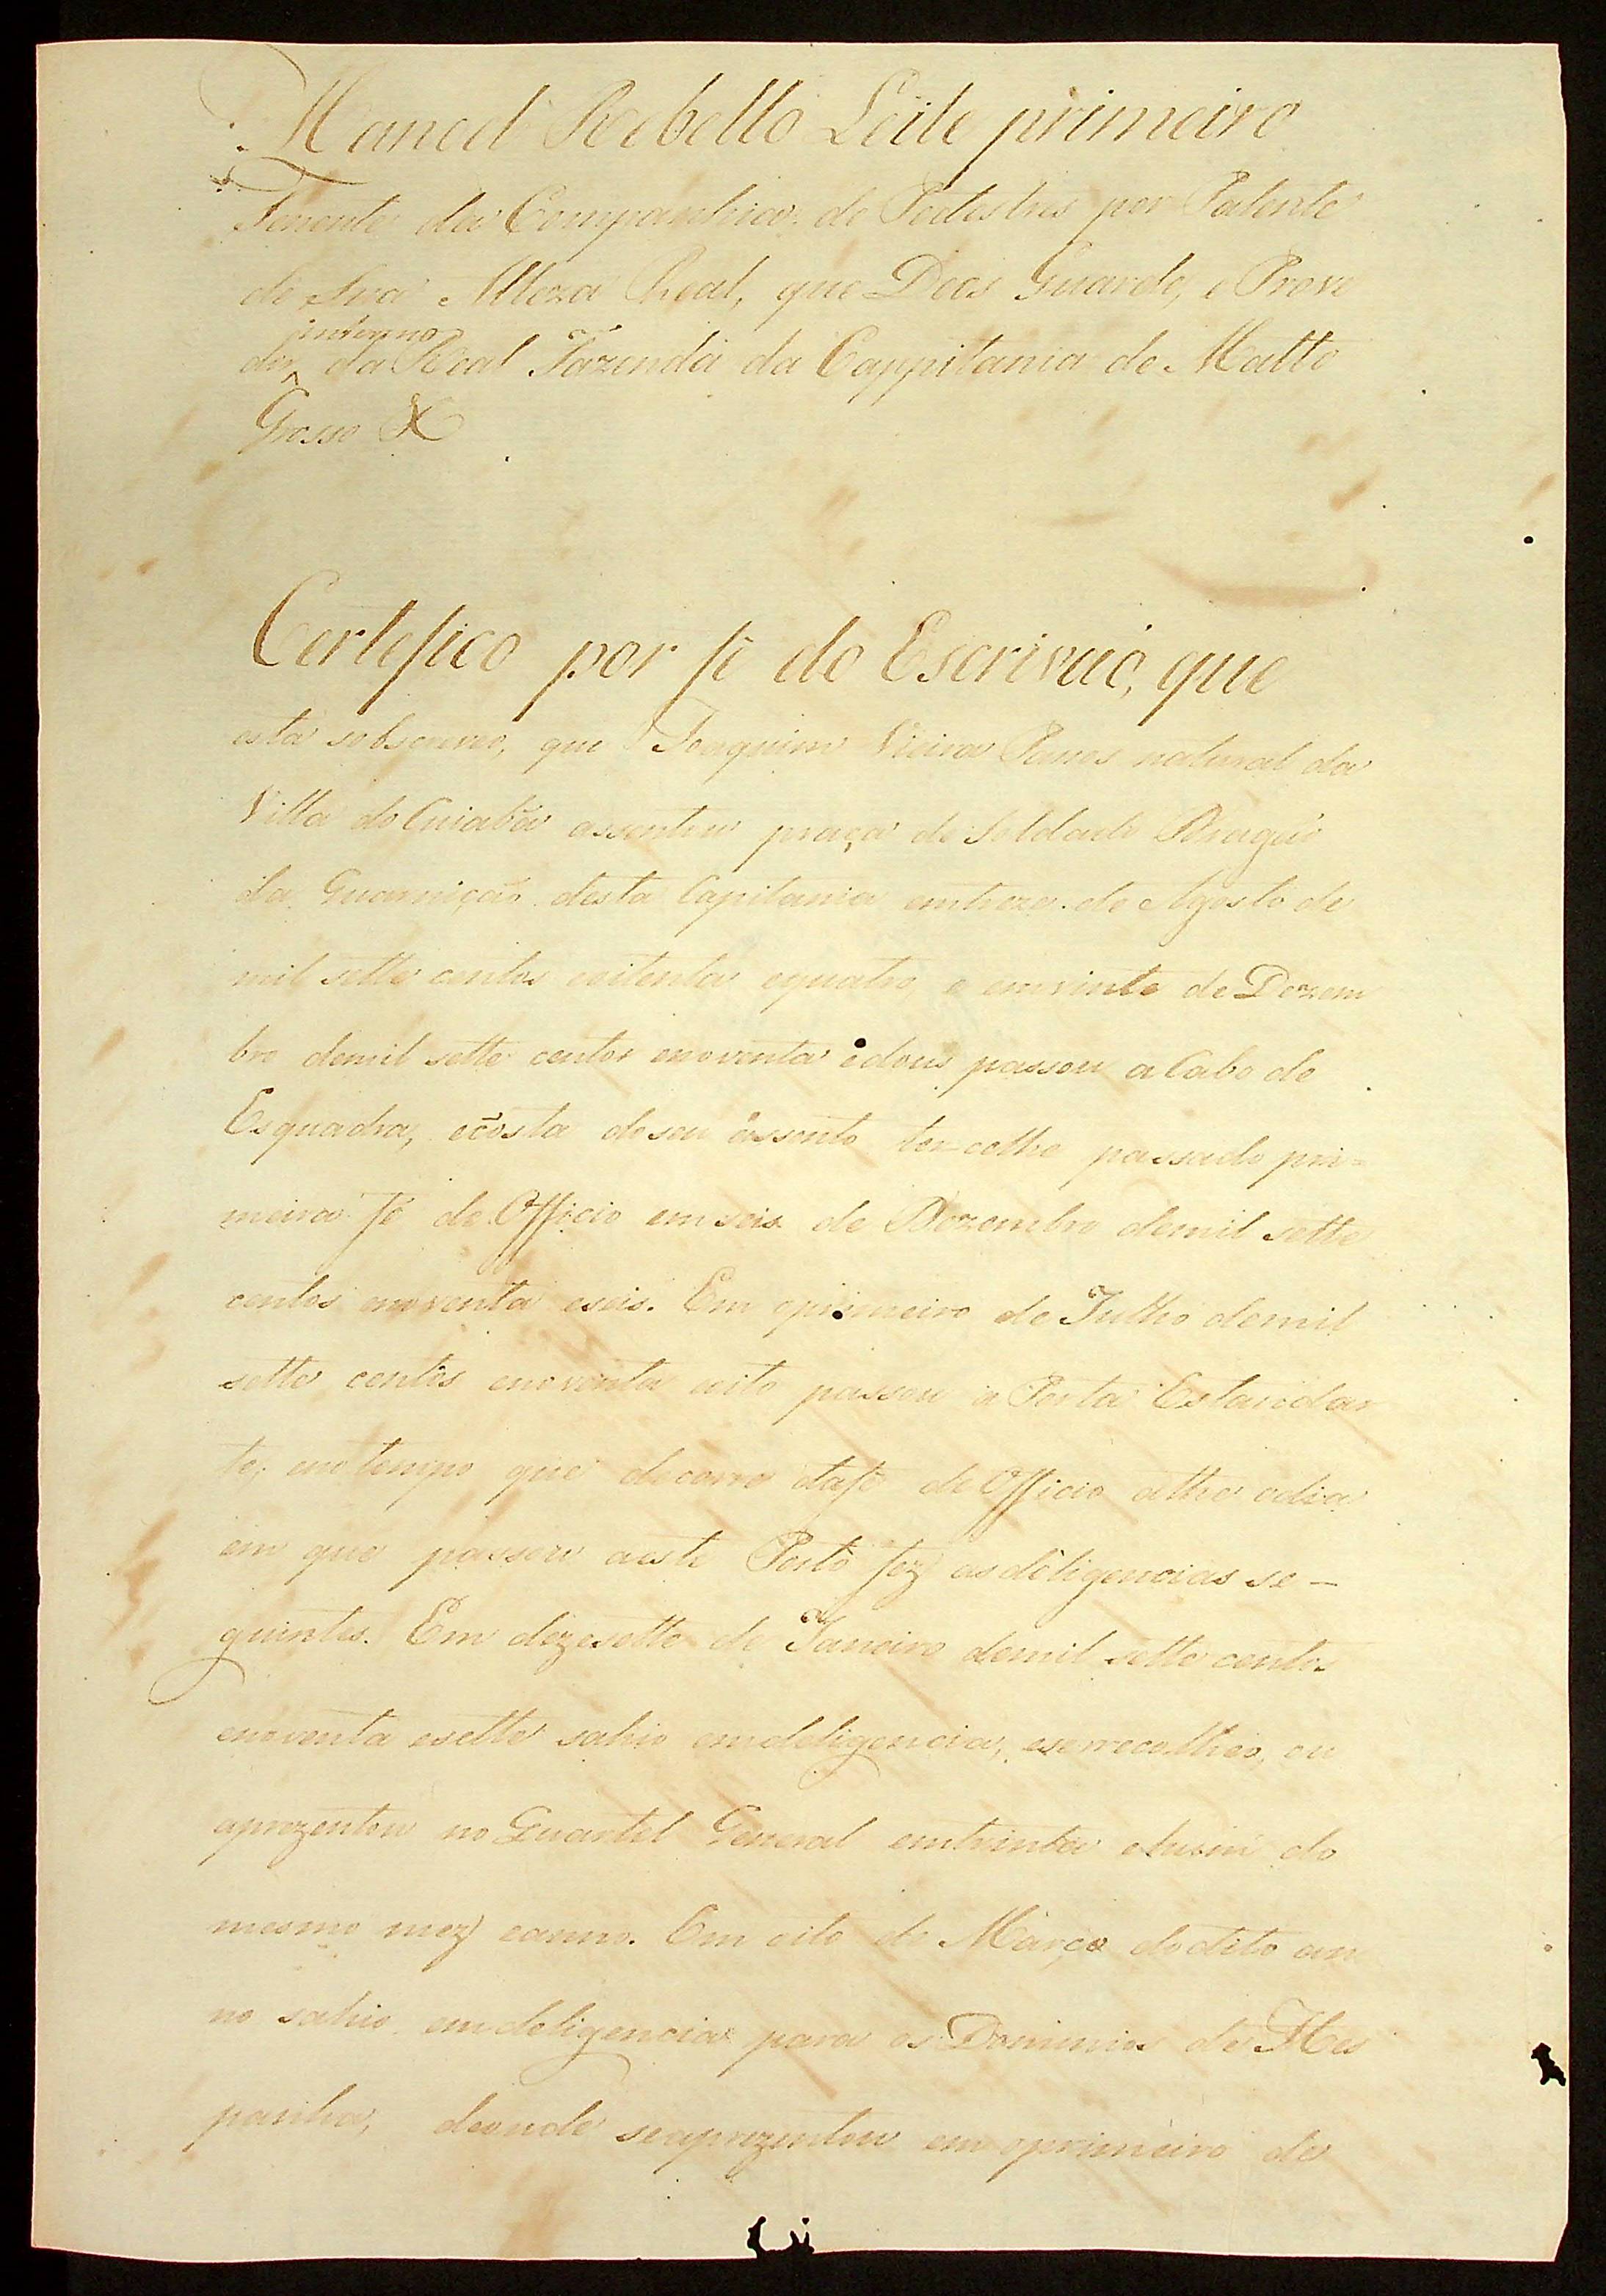 Manoel Rebello Leite primeiro
Tenente da Companhia de Pedestres por Patente
de Sua Alteza Real, que Deos Guarde, e Prove
interino
dor da Real Fazenda da Cappitania de Matto
Grosso &
Certefico por fé do Escrivaõ, que
esta sobscreveo, que Joaquim Vieira Passos natural da
Villa do Cuiabá assentou praça de Soldado Dragaõ
da Guarniçaõ desta Capitania emtreze de Agosto de
mil sette centos eoitenta equatro e emvinte de Dezem
bro demil sette centos enoventa edous passou a Cabo de
Esquadra, ecõsta deseu assento ter-celhe passado pri=
meira fé de Officio emseis de Dezembro demil sette
centos enoventa eseis. Em oprimeiro de Julho demil
sette centos enoventa eoito passou a Porta Estandar
te, eno tempo que decorre dafé de Officio athe odia
em que passou aeste Posto fez as deligencias se-
guintes. Em dezesette de Janeiro demil sette centos
enoventa esette sahio emdeligencia, eserrecolheo, ou
aprezentou no Quartel General emtrinta ehum do
mesmo mez eanno. Em oito de Março dodito an
no sahio emdeligencia para os Dominios de Hes
panha, deonde seaprezentou em oprimeiro de